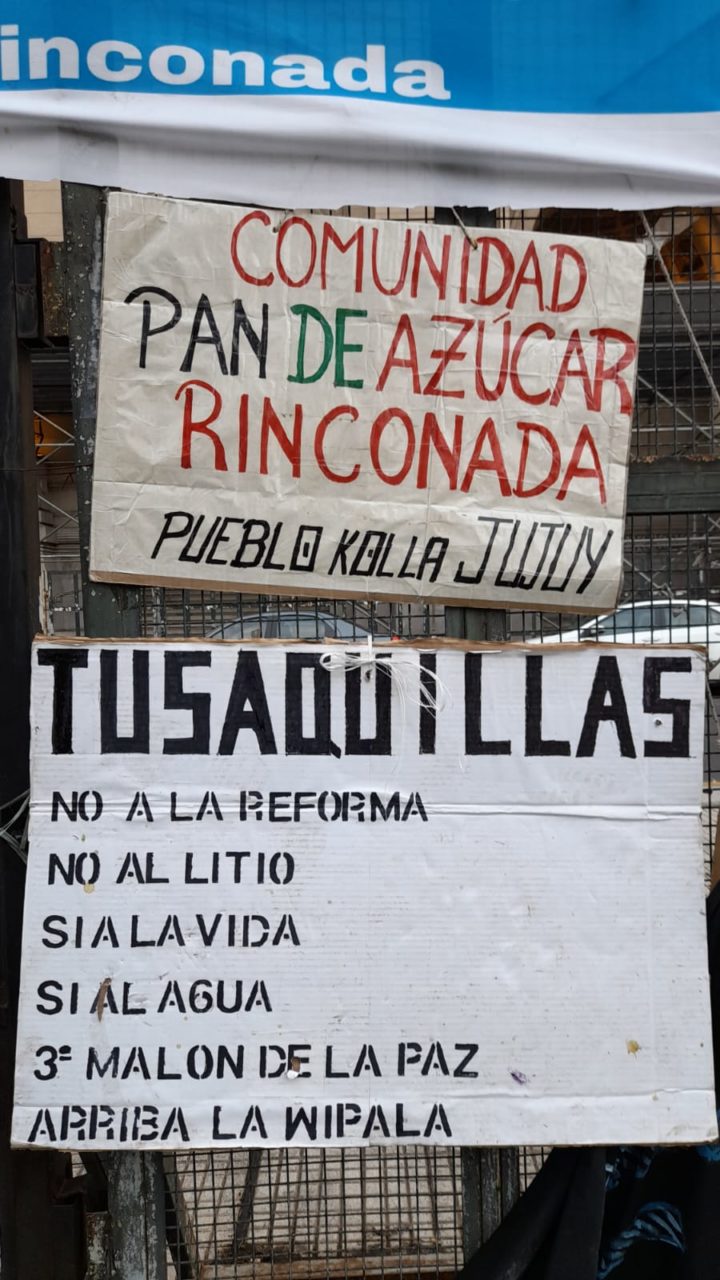 inconada
COMUNIDAD
PAN DE AZÚCAR
RINCONADA
PUEBLO KOLLA JUJUY
TUSAQUILLAS
NO A LA REFORMA
NO AL LITIO
SI A LA VIDA
SI AL AGUA
3º MALON DE LA PAZ
ARRIBA LA WIPALA